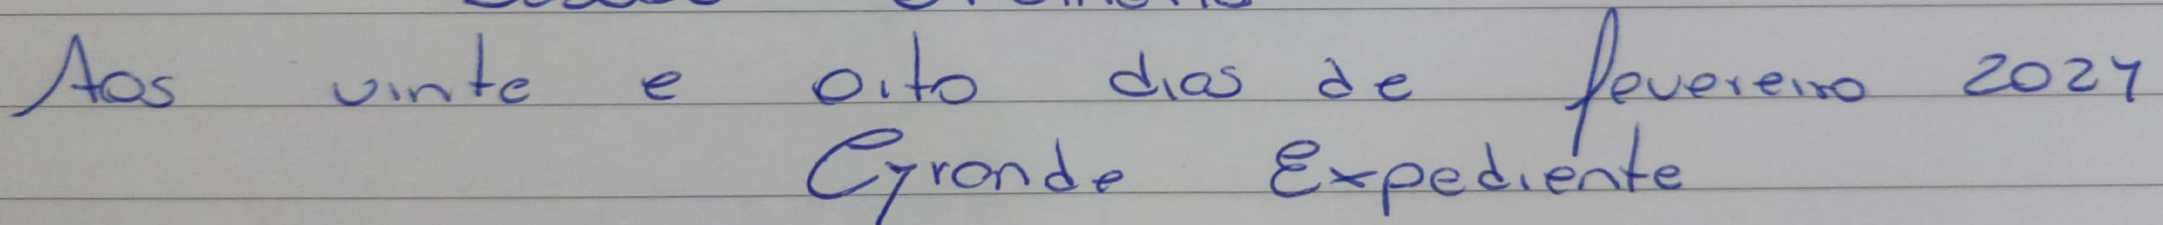 Aos vinte e oito dias de fevereiro 2024
Grande Expediente